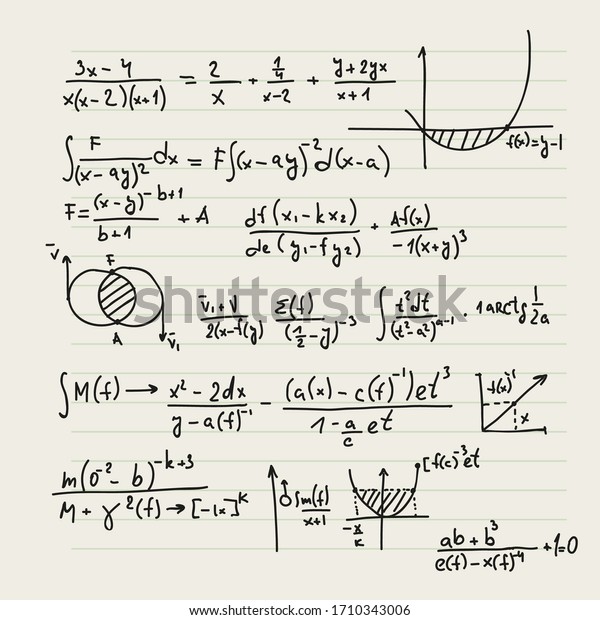 (3x-4)/(x(x-2)(x+1)) = 2/x + (1/4)/(x-2) + (y+2yx)/(x+1)
f(x)=y-1
∫ F/(x-ay)² dx = F∫(x-ay)⁻² d(x-a)
F = (x-y)^(-b+1)/(b+1) + A
df(x₁-kx₂)/de(y₁-fy₂) + Af(x)/(-1(x+y)³)
v̄ F
A v̄₁
(v̄₁+v)/(2(x-f(y) Σ(f)/(½-y)⁻³ ∫ t²dt/(t²-a²)^(a-1) · 1arctg 1/2a
∫M(f) → (x²-2dx)/(y-a(f)⁻¹) - ((a(x)-c(f)⁻¹)et³)/(1-(a/c)et)
f(x)⁻¹
x
m(0⁻²-b)^(-k+3)/(M+γ²(f)→[-1x]^k)
∫m(f)/(x+1)
-x/k
[f(c)⁻³et
(ab+b³)/(e(f)-x(f)⁻⁴) +1=0
shutterstock
shutterstock.com · 1710343006